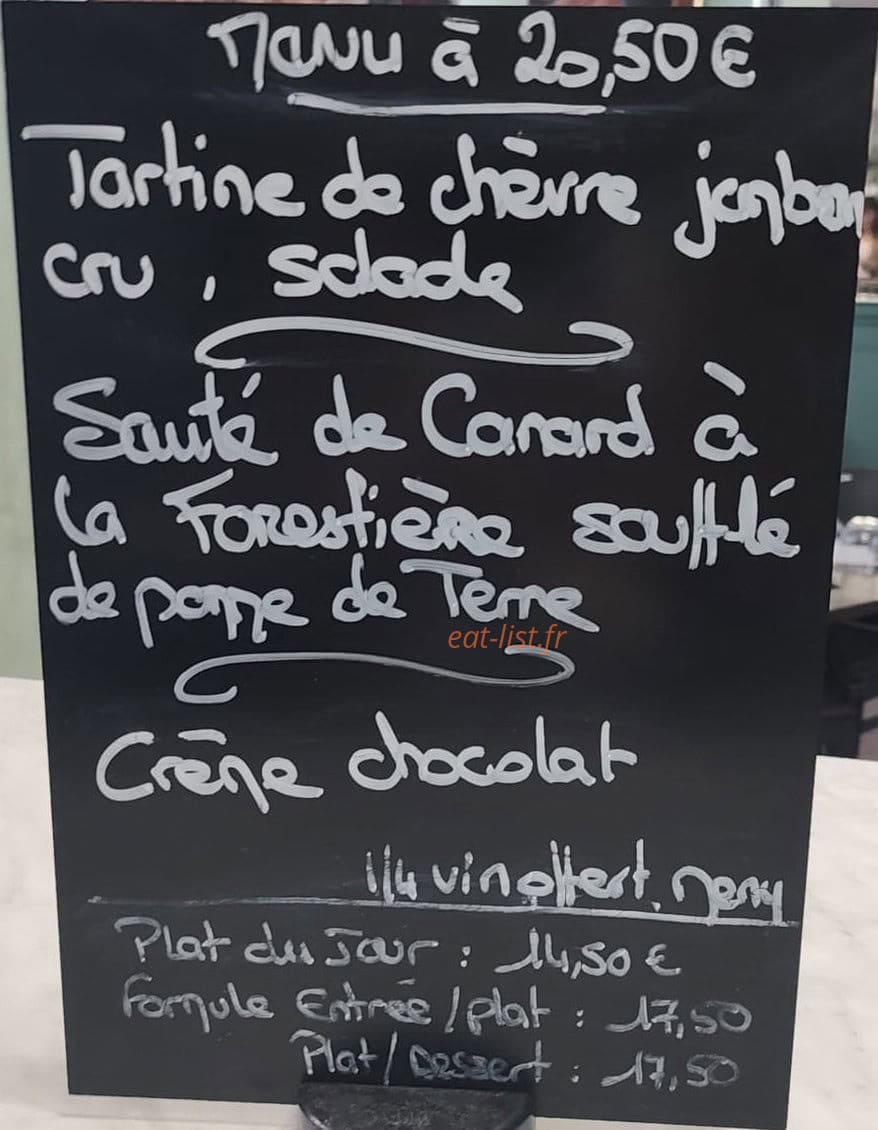 Menu à 20,50 €
Tartine de chèvre jambon
cru, salade
Sauté de Canard à
la Forestière soufflé
de pomme de Terre
eat-list.fr
Crème chocolat
1/4 vin offert. menu
Plat du Jour : 14,50 €
Formule Entrée/plat : 17,50
Plat/Dessert : 17,50